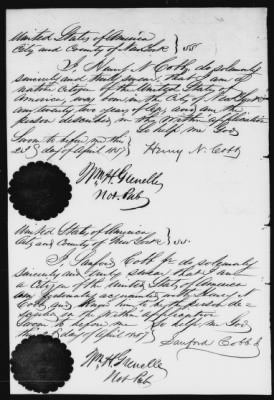 United States of America
City and County of New York } SS
I Henry N. Cobb, do solemnly
sincerely and truly swear, that I am a
native citizen of the United States of
America, was born in the City of New York
am twenty two years of age, and am the
person described in the within application
So help me God
Sworn to before me this
day of April 1857 } Henry N. Cobb
Wm. H. Grenelle
Not. Pub.
United States of America
City and County of New York } SS
I Sanford Cobb Jr do solemnly
sincerely and truly swear that I am
a Citizen of the United States of America
am acquainted with Henry N
Cobb, and know him to be the person de
scribed in the within application
Sworn to before me So help me God
this day of April 1857 } Sanford Cobb Jr
Wm. H. Grenelle
Not. Pub.